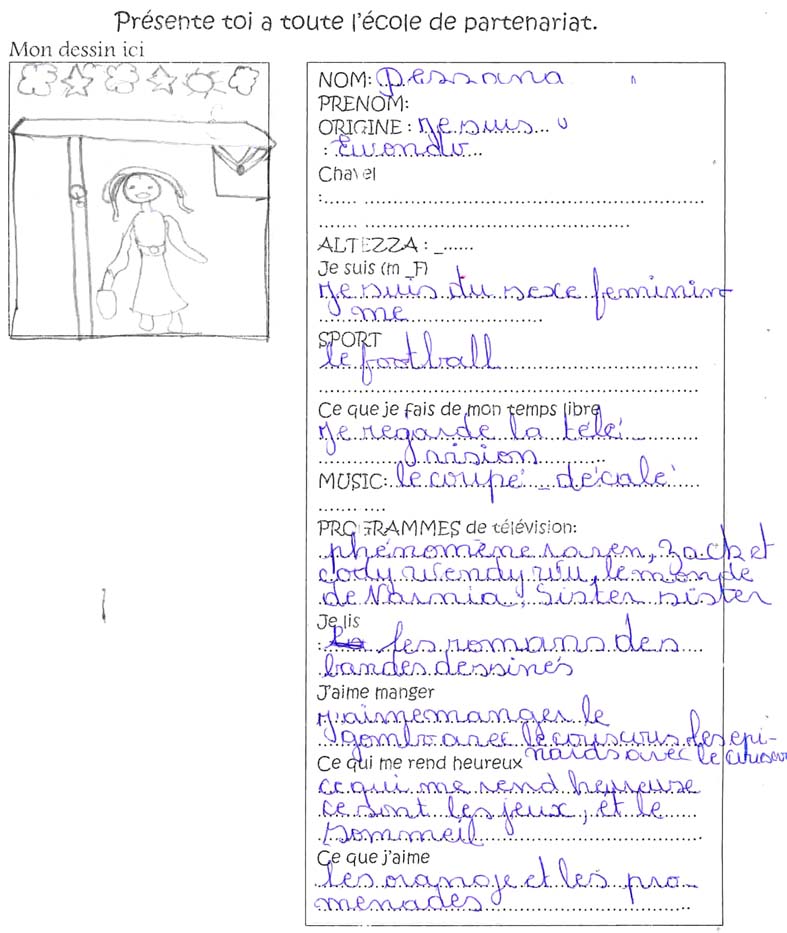 Présente toi a toute l'école de partenariat.
Mon dessin ici
NOM: Dessana
PRENOM:
ORIGINE : Je suis...
: Ewondo...
:...... ...............................................................
...... ...................................................
ALTEZZA : _......
Je suis (m _F)
Je suis du sexe feminin
me
SPORT
le football
Ce que je fais de mon temps libre
Je regarde la télé
vision
MUSIC: le coupé - décalé
....... ....
PROGRAMMES de télévision:
phénomène raven, zack et
cody, Wendy wu, le monde
de Narnia, Sister sister
Je lis
: les romans des
bandes dessinés
J'aime manger
J'aime manger le
gombo avec le couscous les epi-
nards avec le couscous
Ce qui me rend heureux
ce qui me rend heureuse
ce sont les jeux, et le
sommeil
Ce que j'aime
les orange et les pro-
menades